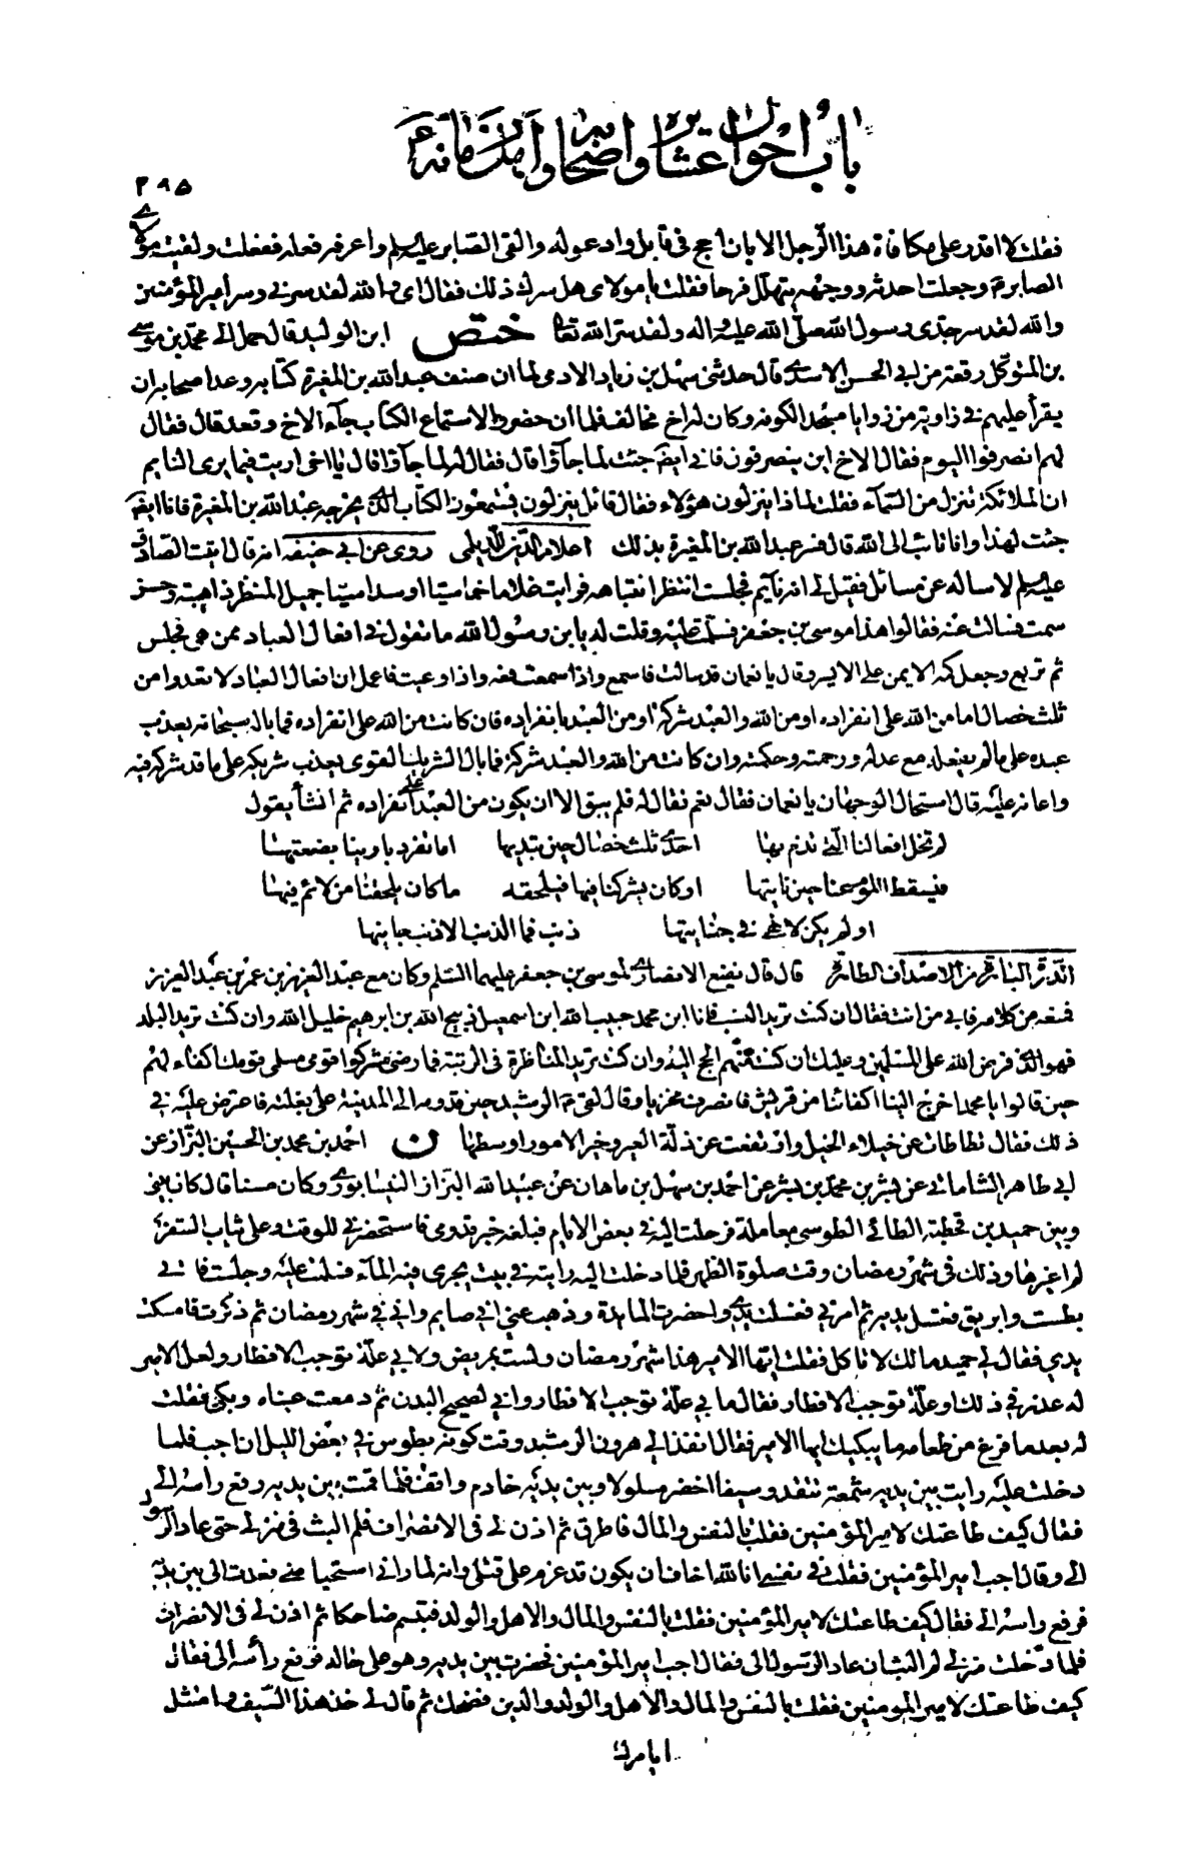 باب احوال عشائره واصحابه واهل زمانه ع
٢٨٥
فقلت لا اقدر على مكافاة هذا الرجل الا بان احج في قابل وادعو له والقى الصابر عليه السلم واعرفه فعله ففعلت ولقيت مولاى
الصابر ع وجعلت احدثه ووجهه يتهلل فرحا فقلت يا مولاى هل سرك ذلك فقال اى والله لقد سرنى وسر امير المؤمنين
والله لقد سر جدى رسول الله صلى الله عليه واله ولقد سر الله تعالى ختص ابن الوليد قال حمل الى محمد بن موسى
بن المتوكل رقعة من ابى الحسن الاسدى قال حدثنى سهل بن زياد الادمى لما ان صنف عبد الله بن المغيرة كتابه وعد اصحابه ان
يقرأ عليهم فى زاوية من زوايا مسجد الكوفة وكان له اخ مخالف فلما ان حضروا لاستماع الكتاب جآء الاخ وقعد قال فقال
لهم انصرفوا اليوم فقال الاخ اين ينصرفون فانى ايضا جئت لما جآؤا قال فقال له لما جآؤا قال يا اخى اريت فيما يرى النايم
ان الملائكة تنزل من السمآء فقلت لماذا ينزلون هؤلاء فقال قائل ينزلون يستمعون الكتاب الذى يخرجه عبد الله بن المغيرة فانا ايضا
جئت لهذا وانا تائب الى الله قال فسر عبد الله بن المغيرة بذلك اعلام الدين للديلمى روى عن ابى حنيفة انه قال اتيت الصادق
عليه السلم لاساله عن مسائل فقيل لى انه نآيم فجلست انتظر انتباهه فرايت غلاما خماسيا او سداسيا جميل المنظر ذا هيبة وحسن
سمت فسالت عنه فقالوا هذا موسى بن جعفر فسلمت عليه وقلت له يا بن رسول الله ما تقول فى افعال العباد ممن هى فجلس
ثم تربع وجعل كمه الايمن على الايسر وقال يا نعمان قد سالت فاسمع واذا سمعت فعه واذا وعيت فاعمل ان افعال العباد لا تعدوا من
ثلث خصال اما من الله على انفراده او من الله والعبد شركة او من العبد بانفراده فان كانت من الله على انفراده فما باله سبحانه يعذب
عبده على ما لم يفعله مع عدله ورحمته وحكمته وان كانت من الله والعبد شركة فما بال الشريك القوى يعذب شريكه على ما قد شركه فيه
واعانه عليه قال استحال الوجهان يا نعمان فقال نعم فقال له فلم يبق الا ان يكون من العبد على انفراده ثم انشأ يقول
لم تخل افعالنا التى نذم بها احدى ثلث خصال حين نبديها اما تفرد بارينا بصنعتها
فيسقط اللوم عنا حين ناتيها او كان يشركنا فيها فيلحقه ما كان يلحقنا من لائم فيها
او لم يكن لالهى فى جنايتها ذنب فما الذنب الا ذنب جانيها
الدرة الباهرة من الاصداف الطاهرة قال قال نفيع الانصارى لموسى بن جعفر عليهما السلم وكان مع عبد العزيز بن عمر بن عبد العزيز
فمنعه من كلامه فابى من انت فقال ان كنت تريد النسب فانا ابن محمد حبيب الله ابن اسمعيل ذبيح الله بن ابرهيم خليل الله وان كنت تريد البلد
فهو الذى فرض الله على المسلمين وعليك ان كنت منهم الحج اليه وان كنت تريد المناظرة فى الرتبة فما رضى مشركوا قومى مسلمى قومك اكفاء لهم
حين قالوا يا محمد اخرج الينا اكفائنا من قريش فانصرف مخزيا وقال لقى ع الرشيد حين قدومه الى المدينة على بغلة فاعترض عليه فى
ذلك فقال تطاطات عن خيلاء الخيل وارتفعت عن ذلة العير وخير الامور اوسطها ن احمد بن محمد بن الحسين البزاز عن
ابى طاهر الشاماتى عن بشر بن محمد بن بشر عن احمد بن سهل بن ماهان عن عبيد الله البزاز النيسابورى وكان مسنا قال كان بينى
وبين حميد بن قحطبة الطائى الطوسى معاملة فرحلت اليه فى بعض الايام فبلغه خبر قدومى فاستحضرنى للوقت وعلى ثياب السفر
لم اغيرها وذلك فى شهر رمضان وقت صلوة الظهر فلما دخلت اليه رايته فى بيت يجرى فيه المآء فسلمت عليه وجلست فاتى
بطست وابريق فغسل يديه ثم امرنى فغسلت يدى واحضرت المايدة وذهب عنى انى صايم وانى فى شهر رمضان ثم ذكرت فامسكت
يدى فقال لى حميد ما لك لا تاكل فقلت ايها الامير هذا شهر رمضان ولست بمريض ولا بى علة توجب الافطار ولعل الامير
له عذر فى ذلك او علة توجب الافطار فقال ما بى علة توجب الافطار وانى لصحيح البدن ثم دمعت عيناه وبكى فقلت
له بعد ما فرغ من طعامه ما يبكيك ايها الامير فقال انفذ الى هرون الرشيد وقت كونه بطوس فى بعض الليل ان اجب فلما
دخلت عليه رايت بين يديه شمعة تتقد وسيفا اخضر مسلولا وبين يديه خادم واقف فلما قمت بين يديه رفع راسه الى
فقال كيف طاعتك لامير المؤمنين فقلت بالنفس والمال فاطرق ثم اذن لى فى الانصراف فلم البث فى منزلى حتى عاد الرسول
الى وقال اجب امير المؤمنين فقلت فى نفسى انا لله اخاف ان يكون قد عزم على قتلى وانه لما رانى استحيا منى فعدت الى بين يديه
فرفع راسه الى فقال كيف طاعتك لامير المؤمنين فقلت بالنفس والمال والاهل والولد فتبسم ضاحكا ثم اذن لى فى الانصراف
فلما دخلت منزلى لم البث ان عاد الرسول الى فقال اجب امير المؤمنين فحضرت بين يديه وهو على حاله فرفع رأسه الى فقال
كيف طاعتك لامير المؤمنين فقلت بالنفس والمال والاهل والولد والدين فضحك ثم قال لى خذ هذا السيف وامتثل
ما يامرك